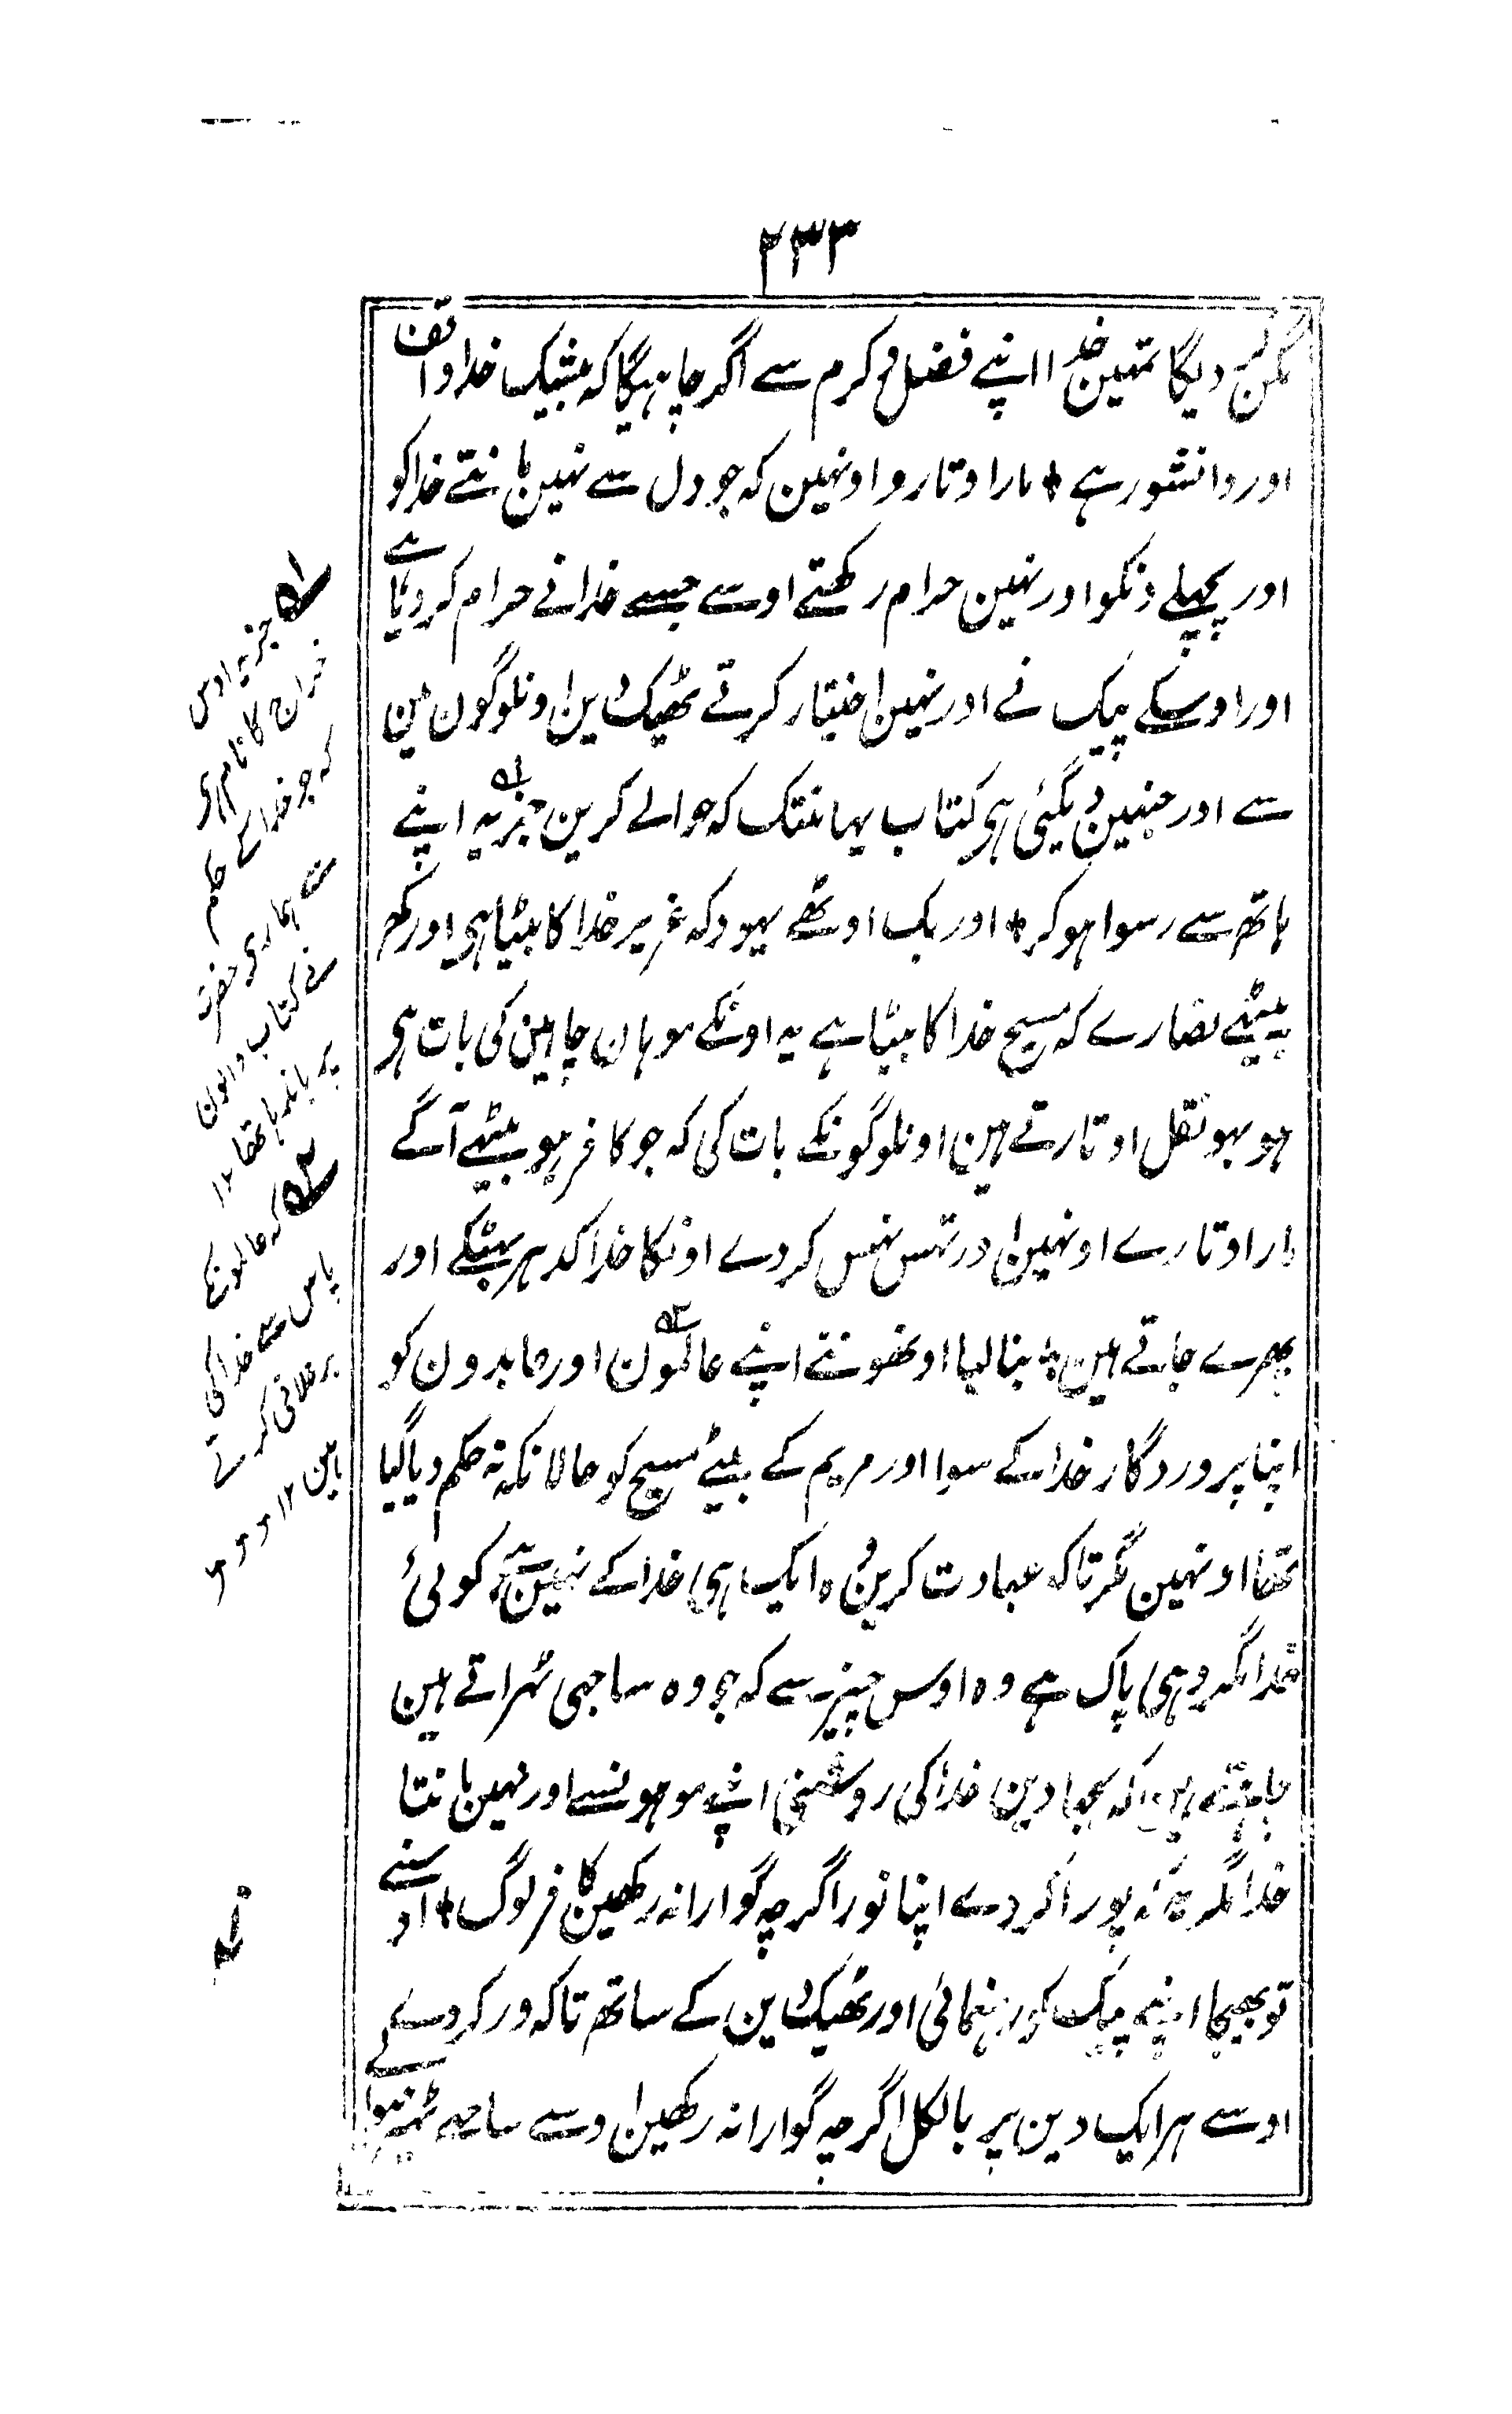 ۲۳۳
مگن کر دیگا تمہین خدا اپنے فضل و کرم سے اگر چاہیگا کہ بیشک خدا واقف
اور دانشور ہے + مارا وتارو اونہین کہ جو دل سے نہین مانتے خدا کو
اور پچھلے دنکو اور نہین حرام رکھتے اوسے جسے خدا نے حرام کر دیا ہے
اور اوسکے پیک نے اور نہین اختیار کرتے ٹھیک دین اونلوگون مین
سے اور جنہین دیگئی ہی کتاب یہانتک کہ حوالے کرین جزیہ ۱ اپنے
ہاتھ سے رسوا ہو کر + اور بک اوٹھے یہود کہ عزیر خدا کا بیٹا ہی اور کہہ
بیٹھے نصارے کہ مسیح خدا کا بیٹا ہے یہ اونکے موہان چاہین کی بات ہی
ہو بہو نقل اوتارتے ہین اونلوگونکے بات کی کہ جو کافر ہو بیٹھے آگے
مار اوتارے اونہین اور تہس نہس کر دے اونکا خدا کدہر بہٹکے اور
پھرے جاتے ہین + بنا لیا اونھونے اپنے عالمون ۲ اور عابدون کو
اپنا پروردگار خدا کے سوا اور مریم کے بیٹے مسیح کو حالانکہ نہ حکم دیا گیا
تھا اونہین مگر تاکہ عبادت کرین وہ ایک ہی خدا کے نہین ہے کوئی
خدا مگر وہی پاک ہے وہ اوس چیز سے کہ جو وہ ساجہی ٹہراتے ہین
چاہتے ہین کہ بجہا دین خدا کی روشنی اپنے موہونسے اور نہین مانتا
خدا مگر یہ کہ پورا کر دے اپنا نور اگرچہ گوارا نہ رکھین کافر لوگ + اوسنے
تو بھیجا اپنے پیک کو رہنمائی اور ٹھیک دین کے ساتھ تاکہ ور کر دے
اوسے ہر ایک دین پر بالکل اگرچہ گوارا نہ رکھین اوسے ساجھے
۱ جزیہ اوس
خراج کا نام ہی
کہ جو خدا کے حکم
سے ہماری حضرت
نے کتاب والون
پر باندہا تھا ۱۲
۲ کہ عالمونکے
پاس سے خدا کی
برخلافی کرتے
ہین ۱۲